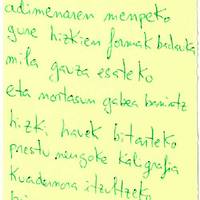 adimenaren menpeko
gure hizkien formak badauka
mila gauza esateko
eta nortasun gabea banintz
hizki hauek bitarteko
prestu ningoke kaligrafia
kuadernora itzultzeko